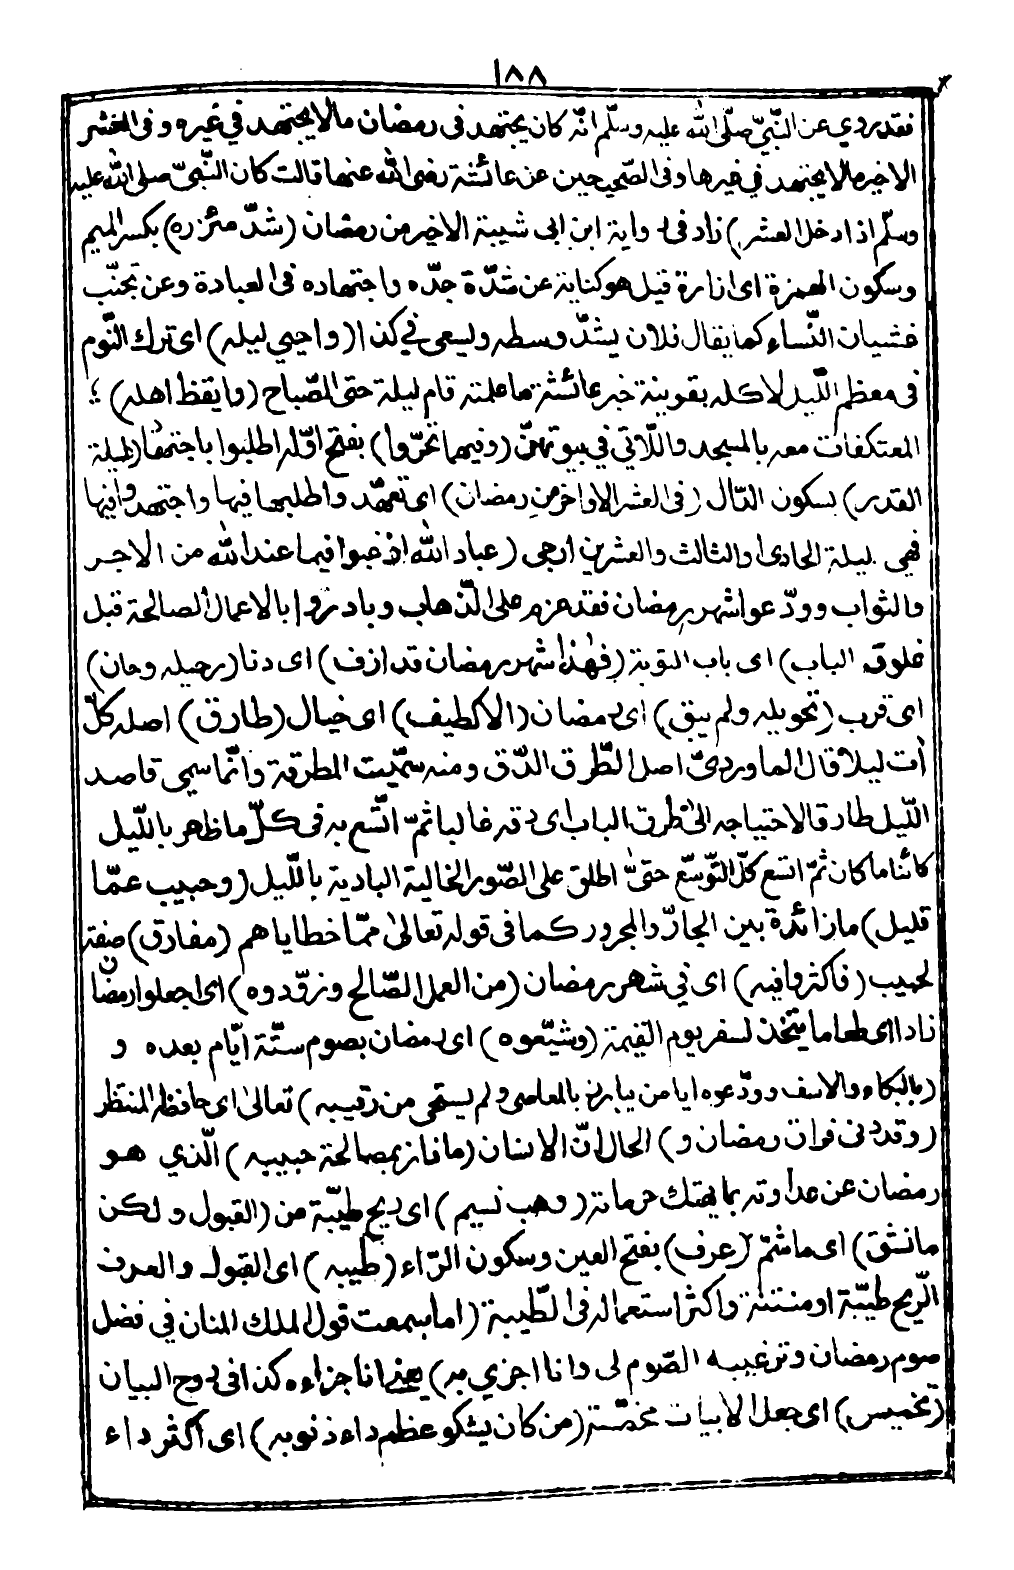 ١٨٨
فقد روي عن النّبيّ صلّى الله عليه وسلّم انّه كان يجتهد فى رمضان مالا يجتهد في غيره وفى العشر
الاخير مالا يجتهد في غيرها وفى الصّحيحين عن عائشة رضى الله عنها قالت كان النّبىّ صلى الله عليه
وسلّم اذا دخل العشر) زاد فى رواية ابن ابى شيبة الاخير من رمضان (شدّ مئزره) بكسر الميم
وسكون الهمزة اى ازاره قيل هو كناية عن شدّة جدّه واجتهاده فى العبادة وعن تجنّب
غشيان النّساء كما يقال فلان يشدّ وسطه ويسعى في كذا (واحيي ليله) اى ترك النّوم
فى معظم اللّيل لا كله بقرينة خبر عائشة ما علمته قام ليلة حتى الصّباح (وايقظ اهله)
المعتكفات معه بالمسجد واللّاتي في بيوتهنّ (وفيهما تحرّوا) بفتح اوّله اطلبوا باجتهاد (ليلة
القدر) بسكون الدّال (فى العشر الاواخر من رمضان) اى تعمّد واطلبها فيها واجتهدوا فيها
فهي ليلة الحادى والثالث والعشرين ارجى (عباد الله ارغبوا فيما عند الله من الاجر
والثواب وودّعوا شهر رمضان فقد عزم على الذّهاب وبادروا بالاعمال الصالحة قبل
غلوق الباب) اى باب التوبة (فهٰذا شهر رمضان قد ازف) اى دنا (رحيله وحان)
اى قرب (تحويله ولم يبق) اى رمضان (الا كطيف) اى خيال (طارق) اصله كلّ
اٰت ليلا قال الماوردىّ اصل الطّرق الدّق ومنه سمّيت المطرقة وانّما سمي قاصد
اللّيل طارقا لاحتياجه الى طرق الباب اى دقه غالبا ثمّ اتّسع به فى كلّ ما ظهر باللّيل
كائنا ما كان ثمّ اتسع كلّ التّوسّع حتىّ اطلق على الصّور الخالية البادية باللّيل (وحبيب عمّا
قليل) ما زائدة بين الجارّ والمجرور كما فى قوله تعالى ممّا خطاياهم (مفارق) صفة
لحبيب (فاكثروا فيه) اى في شهر رمضان (من العمل الصّالح وتزوّدوه) اى اجعلوا رمضان
زادا اى طعاما يتّخذ لسفر يوم القيٰمة (وشيّعوه) اى رمضان بصوم ستّة ايّام بعده و
(بالبكاء والاسف وودّعوه ايا من يبارز بالمعاصى ولم يستحى من رقيبه) تعالى اى حافظه المنتظر
(وقد دنى فراق رمضان و) الحال انّ الانسان (ما فاز بمصالحة حبيبه) الّذي هو
رمضان عن عداوته بما يهتك حرماته (وهب نسيم) اى ريح طيّبة من (القبول ولكن
مانشق) اى ما شمّ (عرف) بفتح العين وسكون الرّاء (طيبه) اى القبول والعرف
الّريح طيّبة او منتنة واكثر استعماله فى الطّيبة (اما سمعت قول الملك المنان في فضل
صوم رمضان وترغيبه الصّوم لى وانا اجزي به) يعنى انا جزاءه كذا فى روح البيان
(تخميس) اى جعل الابيات مخمّسة (من كان يشكو عظم داء ذنوبه) اى اكثر داء